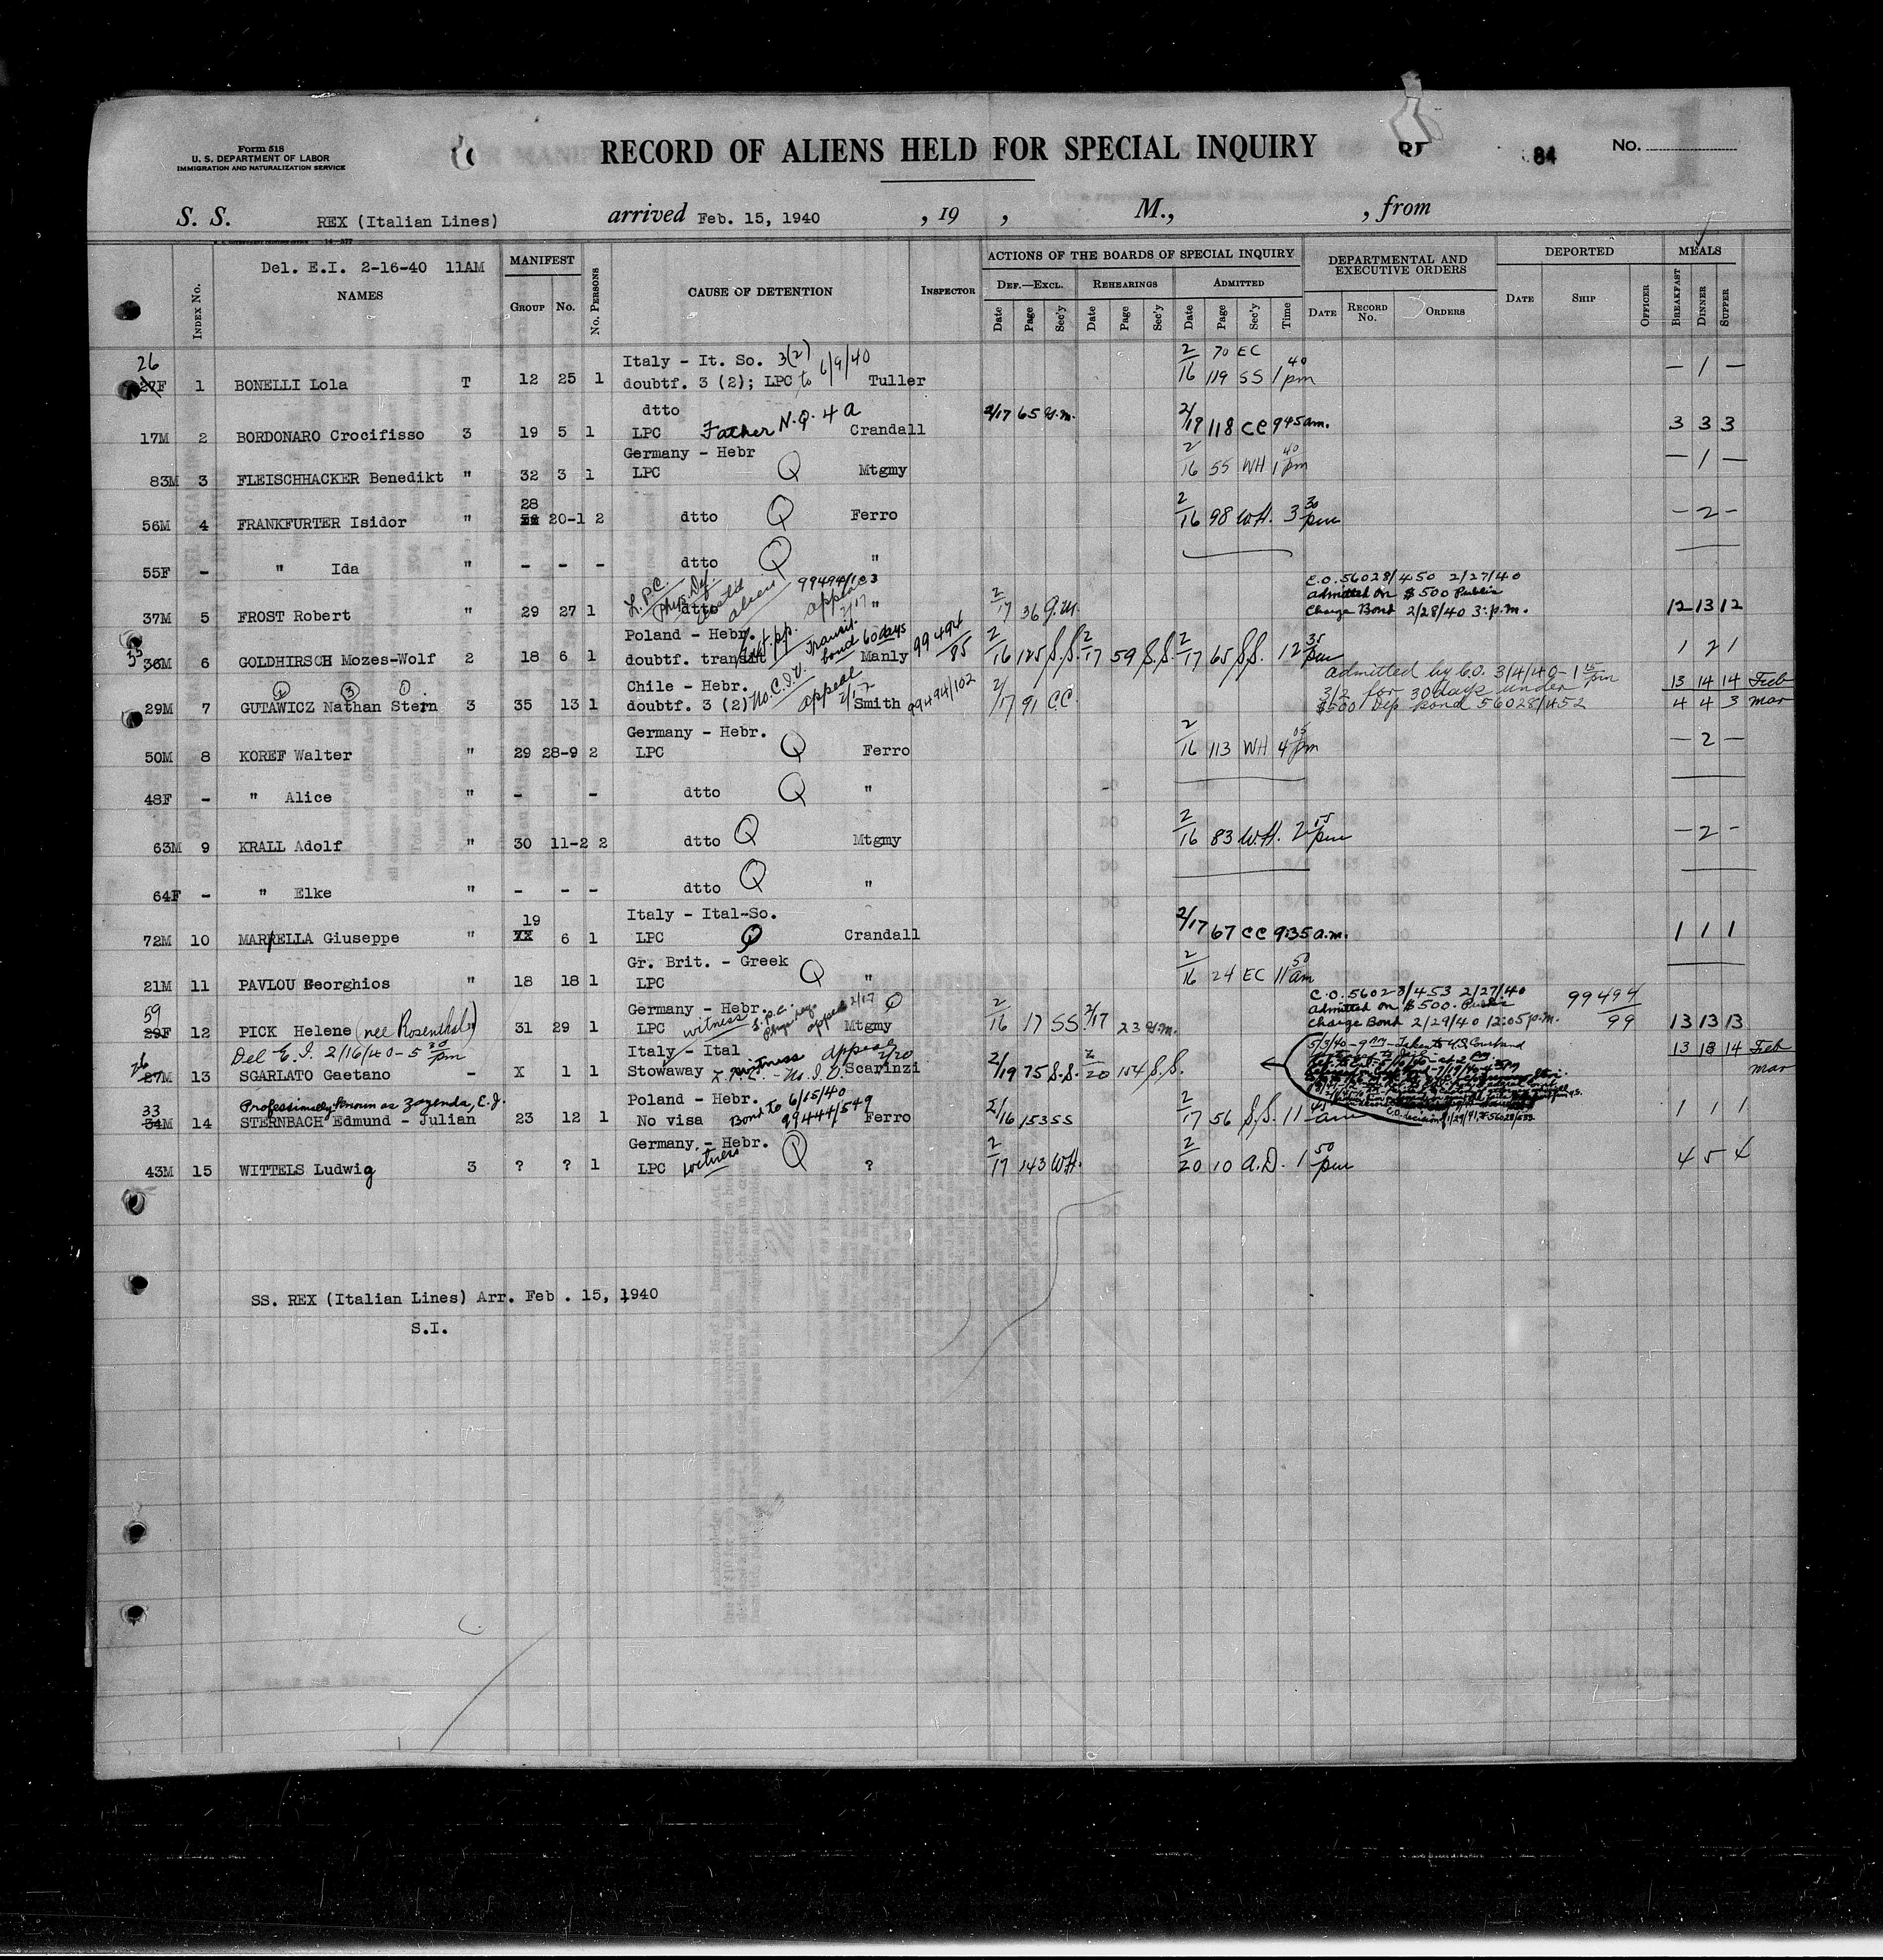 Form 518
U. S. DEPARTMENT OF LABOR
IMMIGRATION AND NATURALIZATION SERVICE
RECORD OF ALIENS HELD FOR SPECIAL INQUIRY
84
No.
S. S. REX (Italian Lines) arrived Feb. 15, 1940 , 19 , M., , from
Del. E.I. 2-16-40 11AM
INDEX No. NAMES MANIFEST GROUP No. No. PERSONS CAUSE OF DETENTION INSPECTOR
ACTIONS OF THE BOARDS OF SPECIAL INQUIRY
DEF.—EXCL. REHEARINGS ADMITTED
Date Page Sec'y Date Page Sec'y Date Page Sec'y Time
DEPARTMENTAL AND EXECUTIVE ORDERS
DATE RECORD No. ORDERS
DEPORTED
DATE SHIP OFFICER
MEALS
BREAKFAST DINNER SUPPER
26
Italy - It. So. 3(2) 2/16 70 EC
27F 1 BONELLI Lola T 12 25 1 doubtf. 3 (2); LPC to 6/9/40 Tuller 119 SS 1 40 pm — 1 —
dtto
17M 2 BORDONARO Crocifisso 3 19 5 1 LPC Father N.Q. 4 a Crandall 2/17 65 2/19 118 CC 9 45 am. 3 3 3
Germany - Hebr
83M 3 FLEISCHHACKER Benedikt " 32 3 1 LPC Q Mtgmy 2/16 55 WH 1 40 pm — 1 —
28
56M 4 FRANKFURTER Isidor " 20-1 2 dtto Q Ferro 2/16 98 W.H. 3 30 pm — 2 —
55F - " Ida " - - - dtto Q "
L.P.C. Phys. Def. aliens 99494/103 appeal 2/17
37M 5 FROST Robert " 29 27 1 dtto " 2/17 36 E.O. 56028/450 2/27/40
admitted on $500 Public
Charge Bond 2/28/40 3 p.m. 12 13 12
35
Poland - Hebr. Transit bond 60 days 99494/85
36M 6 GOLDHIRSCH Mozes-Wolf 2 18 6 1 doubtf. transit Manly 2/16 125 S.S. 2/17 59 S.S. 2/17 65 S.S. 12 35 pm 1 2 1
Chile - Hebr. No. C.I.V. appeal 2/17 99494/102
29M 7 GUTAWICZ Nathan Stern 3 35 13 1 doubtf. 3 (2) Smith 2/17 91 CC
admitted by C.O. 3/4/40 - 1 15 pm
3/2 for 30 days under
$500 Dep bond 56028/452
13 14 14 Feb
4 4 3 Mar
Germany - Hebr.
50M 8 KOREF Walter " 29 28-9 2 LPC Q Ferro 2/16 113 WH 4 05 pm — 2 —
48F - " Alice " - - dtto Q "
63M 9 KRALL Adolf " 30 11-2 2 dtto Q Mtgmy 2/16 83 W.H. 2 15 pm — 2 —
64F - " Elke " - - - dtto Q "
19
Italy - Ital-So.
72M 10 MARRELLA Giuseppe " XX 6 1 LPC Q Crandall 2/17 67 CC 9:35 a.m. 1 1 1
Gr. Brit. - Greek
21M 11 PAVLOU Georghios " 18 18 1 LPC Q " 2/16 24 EC 11 50 am
59
Germany - Hebr. L.P.C. appeal 2/17 Q
29F 12 PICK Helene (nee Rosenthal) " 31 29 1 LPC witness Mtgmy 2/16 17 SS 2/17 23
C.O. 56028/453 2/27/40
admitted on $500. Public
Charge Bond 2/29/40 12:05 p.m. 99494/99 13 13 13
Del E.I. 2/16/40 - 5 30 pm
26
Italy - Ital witness appeal 2/20
27M 13 SGARLATO Gaetano - X 1 1 Stowaway L.P.C. - No. I.V. Scarinzi 2/19 75 S.S. 2/20 104 S.S.
5/3/40 - 9 AM - Taken to U.S. Court
13 13 14 Feb
Mar
Professionally known as Zayenda, E.J.
33
Poland - Hebr. Bond to 6/15/40
34M 14 STERNBACH Edmund - Julian 23 12 1 No visa 99444/549 Ferro 2/16 153 SS 2/17 56 S.S. 11 45 am 1 1 1
Germany - Hebr.
43M 15 WITTELS Ludwig 3 ? ? 1 LPC witness Q ? 2/17 143 W.H. 2/20 10 A.D. 1 50 pm 4 5 4
SS. REX (Italian Lines) Arr. Feb . 15, 1940
S.I.